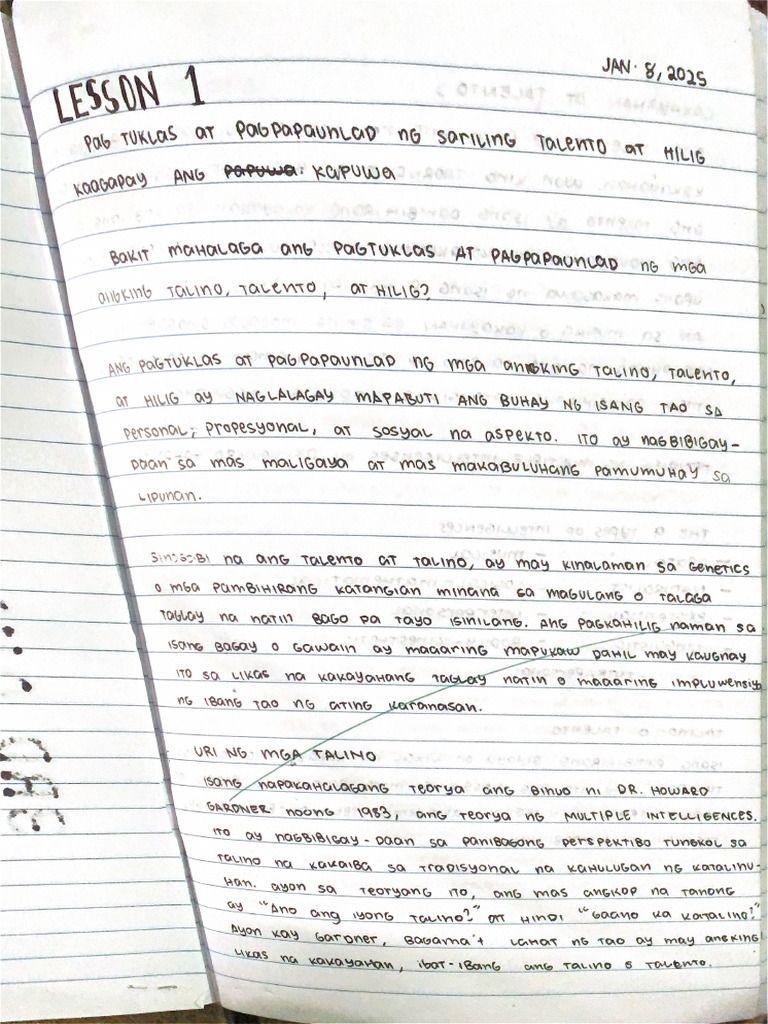 JAN. 8, 2025
LESSON 1
PAGTUKLAS AT PAGPAPAUNLAD NG SARILING TALENTO AT HILIG
KAAGAPAY ANG PAPUWA. KAPUWA
BAKIT MAHALAGA ANG PAGTUKLAS AT PAGPAPAUNLAD NG MGA
ANGKING TALINO, TALENTO, AT HILIG?
ANG PAGTUKLAS AT PAGPAPAUNLAD NG MGA ANGKING TALINO, TALENTO,
AT HILIG AY NAGLALAGAY MAPABUTI ANG BUHAY NG ISANG TAO SA
PERSONAL, PROPESYONAL, AT SOSYAL NA ASPEKTO. ITO AY NAGBIBIGAY-
DAAN SA MAS MALIGAYA AT MAS MAKABULUHANG PAMUMUHAY SA
LIPUNAN.
SINASABI NA ANG TALENTO AT TALINO, AY MAY KINALAMAN SA GENETICS
O MGA PAMBIHIRANG KATANGIAN MINANA SA MAGULANG O TALAGA
TAGLAY NA NATIN BAGO PA TAYO ISINILANG. ANG PAGKAHILIG NAMAN SA
ISANG BAGAY O GAWAIN AY MAAARING MAPUKAW DAHIL MAY KAUGNAY
ITO SA LIKAS NA KAKAYAHANG TAGLAY NATIN O MAAARING IMPLUWENSIYA
NG IBANG TAO NG ATING KARANASAN.
URI NG MGA TALINO
ISANG NAPAKAHALAGANG TEORYA ANG BINUO NI DR. HOWARD
GARDNER NOONG 1983, ANG TEORYA NG MULTIPLE INTELLIGENCES.
ITO AY NAGBIBIGAY-DAAN SA PANIBAGONG PERSPEKTIBO TUNGKOL SA
TALINO NA KAKAIBA SA TRADISYONAL NA KAHULUGAN NG KATALINU-
HAN. AYON SA TEORYANG ITO, ANG MAS ANGKOP NA TANONG
AY "ANO ANG IYONG TALINO?" AT HINDI "GAANO KA KATALINO?"
AYON KAY GARDNER, BAGAMA'T LAHAT NG TAO AY MAY ANGKING
LIKAS NA KAKAYAHAN, IBAT-IBANG ANG TALINO O TALENTO.